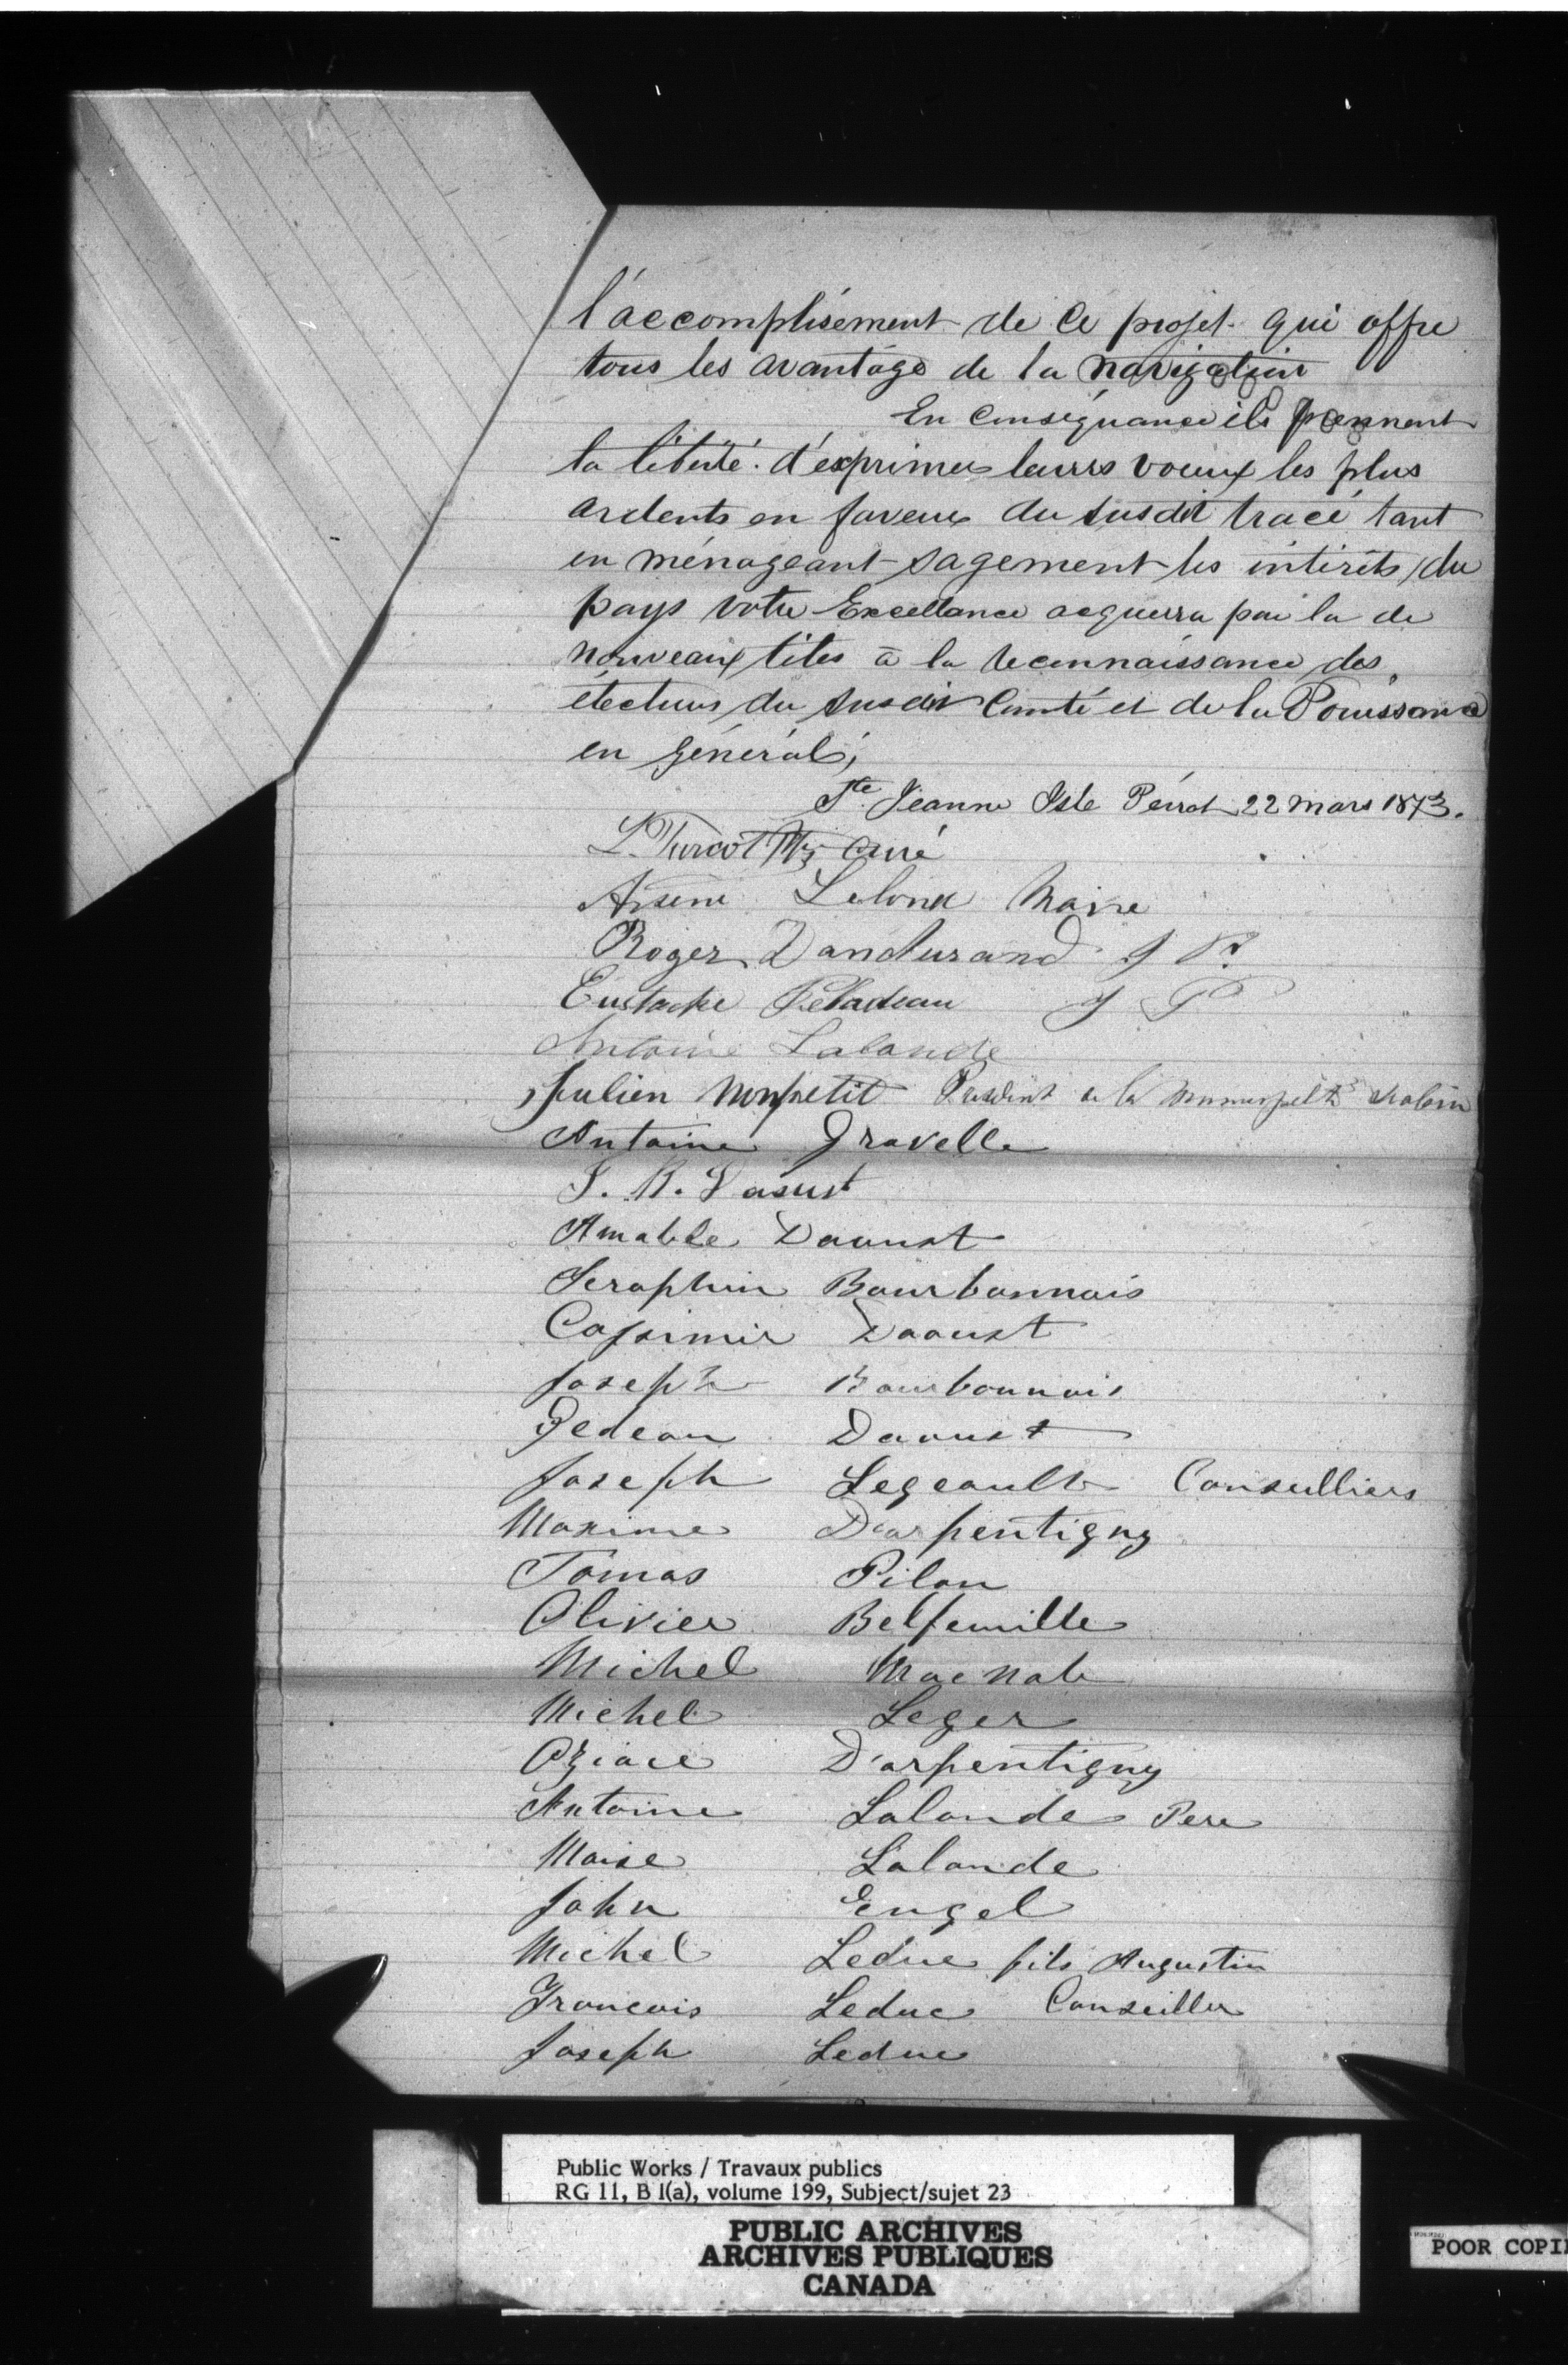 l'accomplisement de ce projet qui offre
tous les avantage de la navigation
En conséquance ils prennent
la liberté d'exprimer leurrs voeux les plus
ardents en faveur du susdit tracé tant
en ménageant sagement les intérêts du
pays votre Excellance acquerra par la de
nouveaux titres à la reconnaissance des
électeurs du susdit Comté et de la Pouissance
en général;
Ste Jeanne Isle Pérrot 22 mars 1873.
L. Turcot Ptre Curé
Arsène Lelond Maire
Roger Dandurand J P.
Eustache Peladeau J P
Antoine Lalonde
Julien Monpetit Président de la
Antoine Gravelle
J. B. Daoust
Amable Daoust
Seraphin Bourbonnais
Cassimir Daoust
Joseph Bourbonnais
Gedeon Daoust
Joseph Legeault Conseilliers
Maxime D'arpentigny
Tomas Pilon
Olivier Belfeuille
Michel Mac Nab
Michel Leger
Oziace D'arpentigny
Antoine Lalonde Pere
Moise Lalonde
John Engel
Michel Leduc fils Augustin
Francois Leduc Conseiller
Joseph Leduc
Public Works / Travaux publics
RG 11, B 1(a), volume 199, Subject/sujet 23
PUBLIC ARCHIVES
ARCHIVES PUBLIQUES
CANADA
POOR COPI